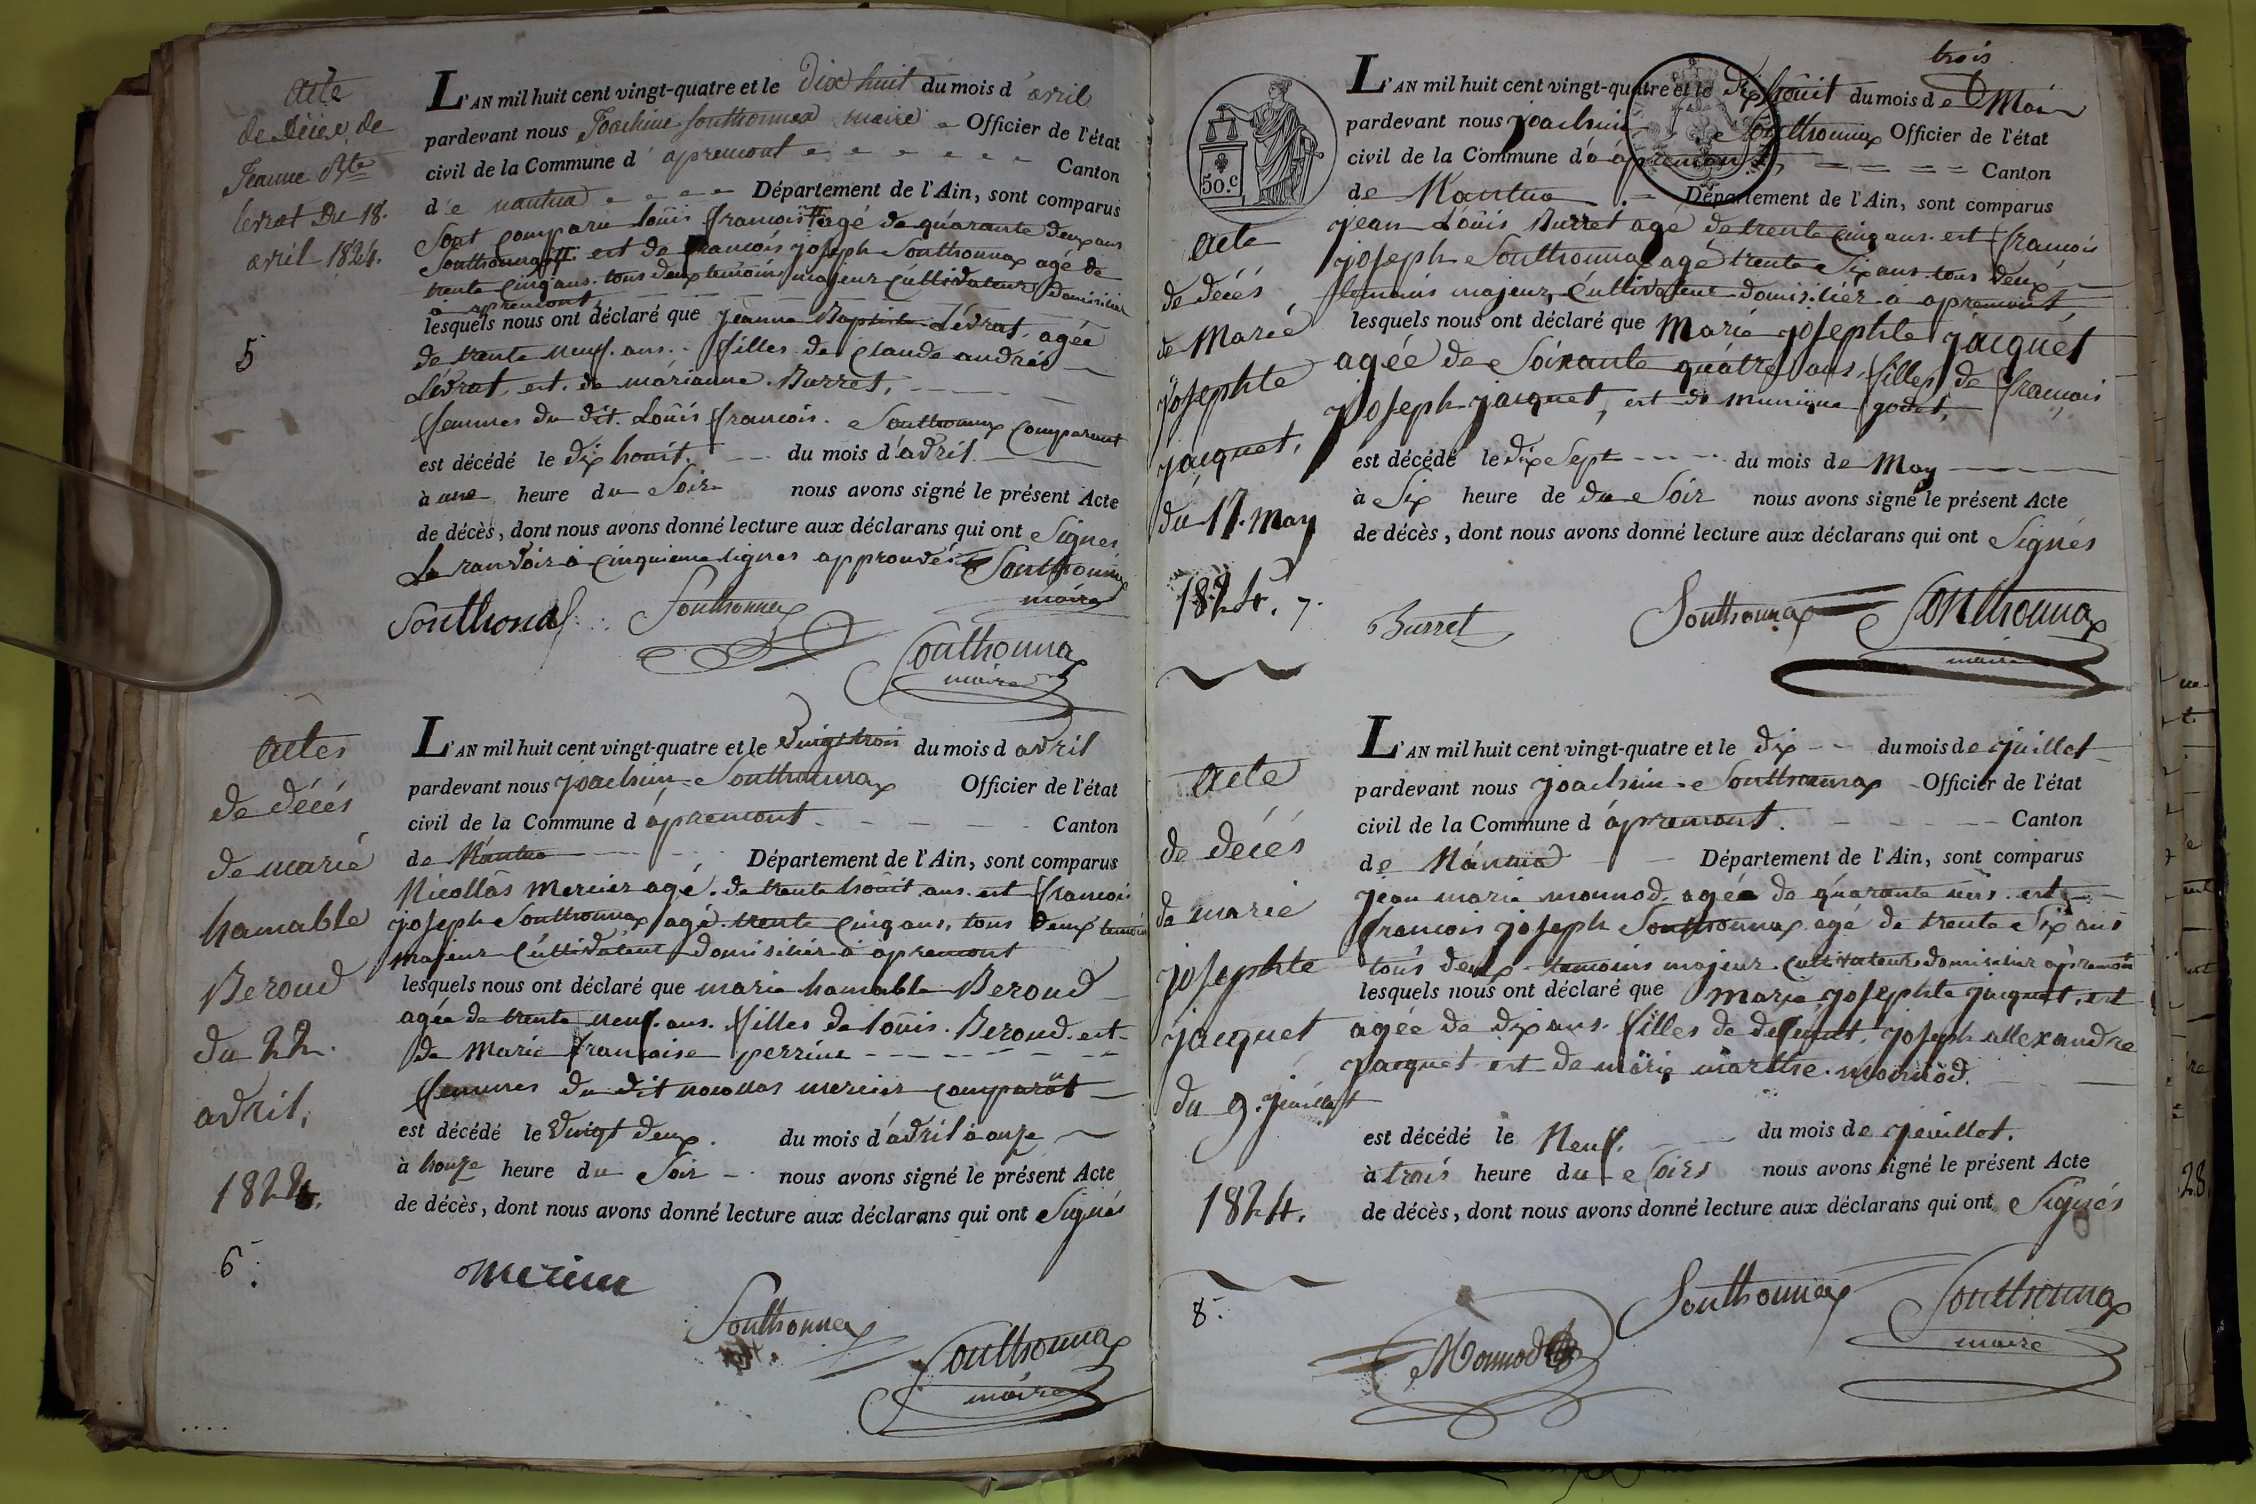 acte
de décex de
Jeanne Bte
levrat Du 18.
avril 1824.
5
L'AN mil huit cent vingt-quatre et le Dix huit du mois d'avril
pardevant nous Joachim Southonnax maire Officier de l'état
civil de la Commune d'apremont Canton
de nantua Département de l'Ain, sont comparus
Sont comparu louis francois # agé de quarante deux ans
Southonnax # est de francois joseph Southonnax agé de
trente cinq ans. tous deux temoins majeur cultivateur domisilier
à apremont
lesquels nous ont déclaré que jeanne Baptiste Lévrat, agée
de trente neuf. ans. filles de Claude andré
Lévrat est. de marianne. Burret,
femmes du dit. Louis francois. Southonnax comparant
est décédé le dix houit. du mois d'avril
à une heure du Soir nous avons signé le présent Acte
de décès, dont nous avons donné lecture aux déclarans qui ont Signés
Le ranvoir à cinquieme lignes approuvés Southonnax
maire
Southonax Southonnax
Southonnax
maire
Actes
de décés
de marie
hamable
Beroud
du 22.
avril,
1824.
6.
L'AN mil huit cent vingt-quatre et le vingt trois du mois d avril
pardevant nous joachim Southonnax Officier de l'état
civil de la Commune d'apremont Canton
de Nantua Département de l'Ain, sont comparus
Nicollas Mercier agé. de trente houit ans. est francois
joseph Southonnax agé. trente cinq ans, tous deux temoin
majeur cultivateur domisilier à apremont
lesquels nous ont déclaré que marie hamable Beroud
agée de trente neuf. ans. filles de louis. Beroud. est
de Marie francoise perrine
femmes du dit nocollas mercier comparat
est décédé le vingt deux. du mois d'avril à onze
à honze heure du Soir nous avons signé le présent Acte
de décès, dont nous avons donné lecture aux déclarans qui ont Signés
Mercier
Southonnax
Southonnax
maire
50.c
acte
de décés
de Marie
josephte
jacquet,
du 17. May
1824. 7.
trois
L'AN mil huit cent vingt-quatre et le dix houit du mois de Mai
pardevant nous joachim Southonnax Officier de l'état
civil de la Commune d'a apremont Canton
de Nantua Département de l'Ain, sont comparus
jean Louis Burret agé de trente cinq ans. est francois
joseph Southonnax agé trente six ans tous deux
temoins majeur, cultivateur domisilier à apremont,
lesquels nous ont déclaré que Marie josephte jacquet
agée de Soixante quatre ans, filles de francois
joseph jacquet, est de munique godet,
est décédé le dix Sept du mois de May
à Six heure de du Soir nous avons signé le présent Acte
de décès, dont nous avons donné lecture aux déclarans qui ont Signés
Burret Southonnax Southonnax
maire
Acte
de décés
de marie
josephte
jacquet
du 9. juillet
1824.
8.
L'AN mil huit cent vingt-quatre et le dix du mois de juillet
pardevant nous joachim Southonnax Officier de l'état
civil de la Commune d'apremont. Canton
de Nantua Département de l'Ain, sont comparus
jean marie monnod, agée de quarante est
francois joseph Southonnax agé de trente Six ans
tous deux temoins majeur. cultivateur domisilier apremont
lesquels nous ont déclaré que Marie josephte jacquet, est
agée de dix ans. filles de defeunt, joseph allexandre
jacquet est de marie marthe. monnod.
est décédé le Neuf. du mois de jeuillet.
à trois heure du Soirs nous avons signé le présent Acte
de décès, dont nous avons donné lecture aux déclarans qui ont Signés
Monnod Southonnax Southonnax
maire
28